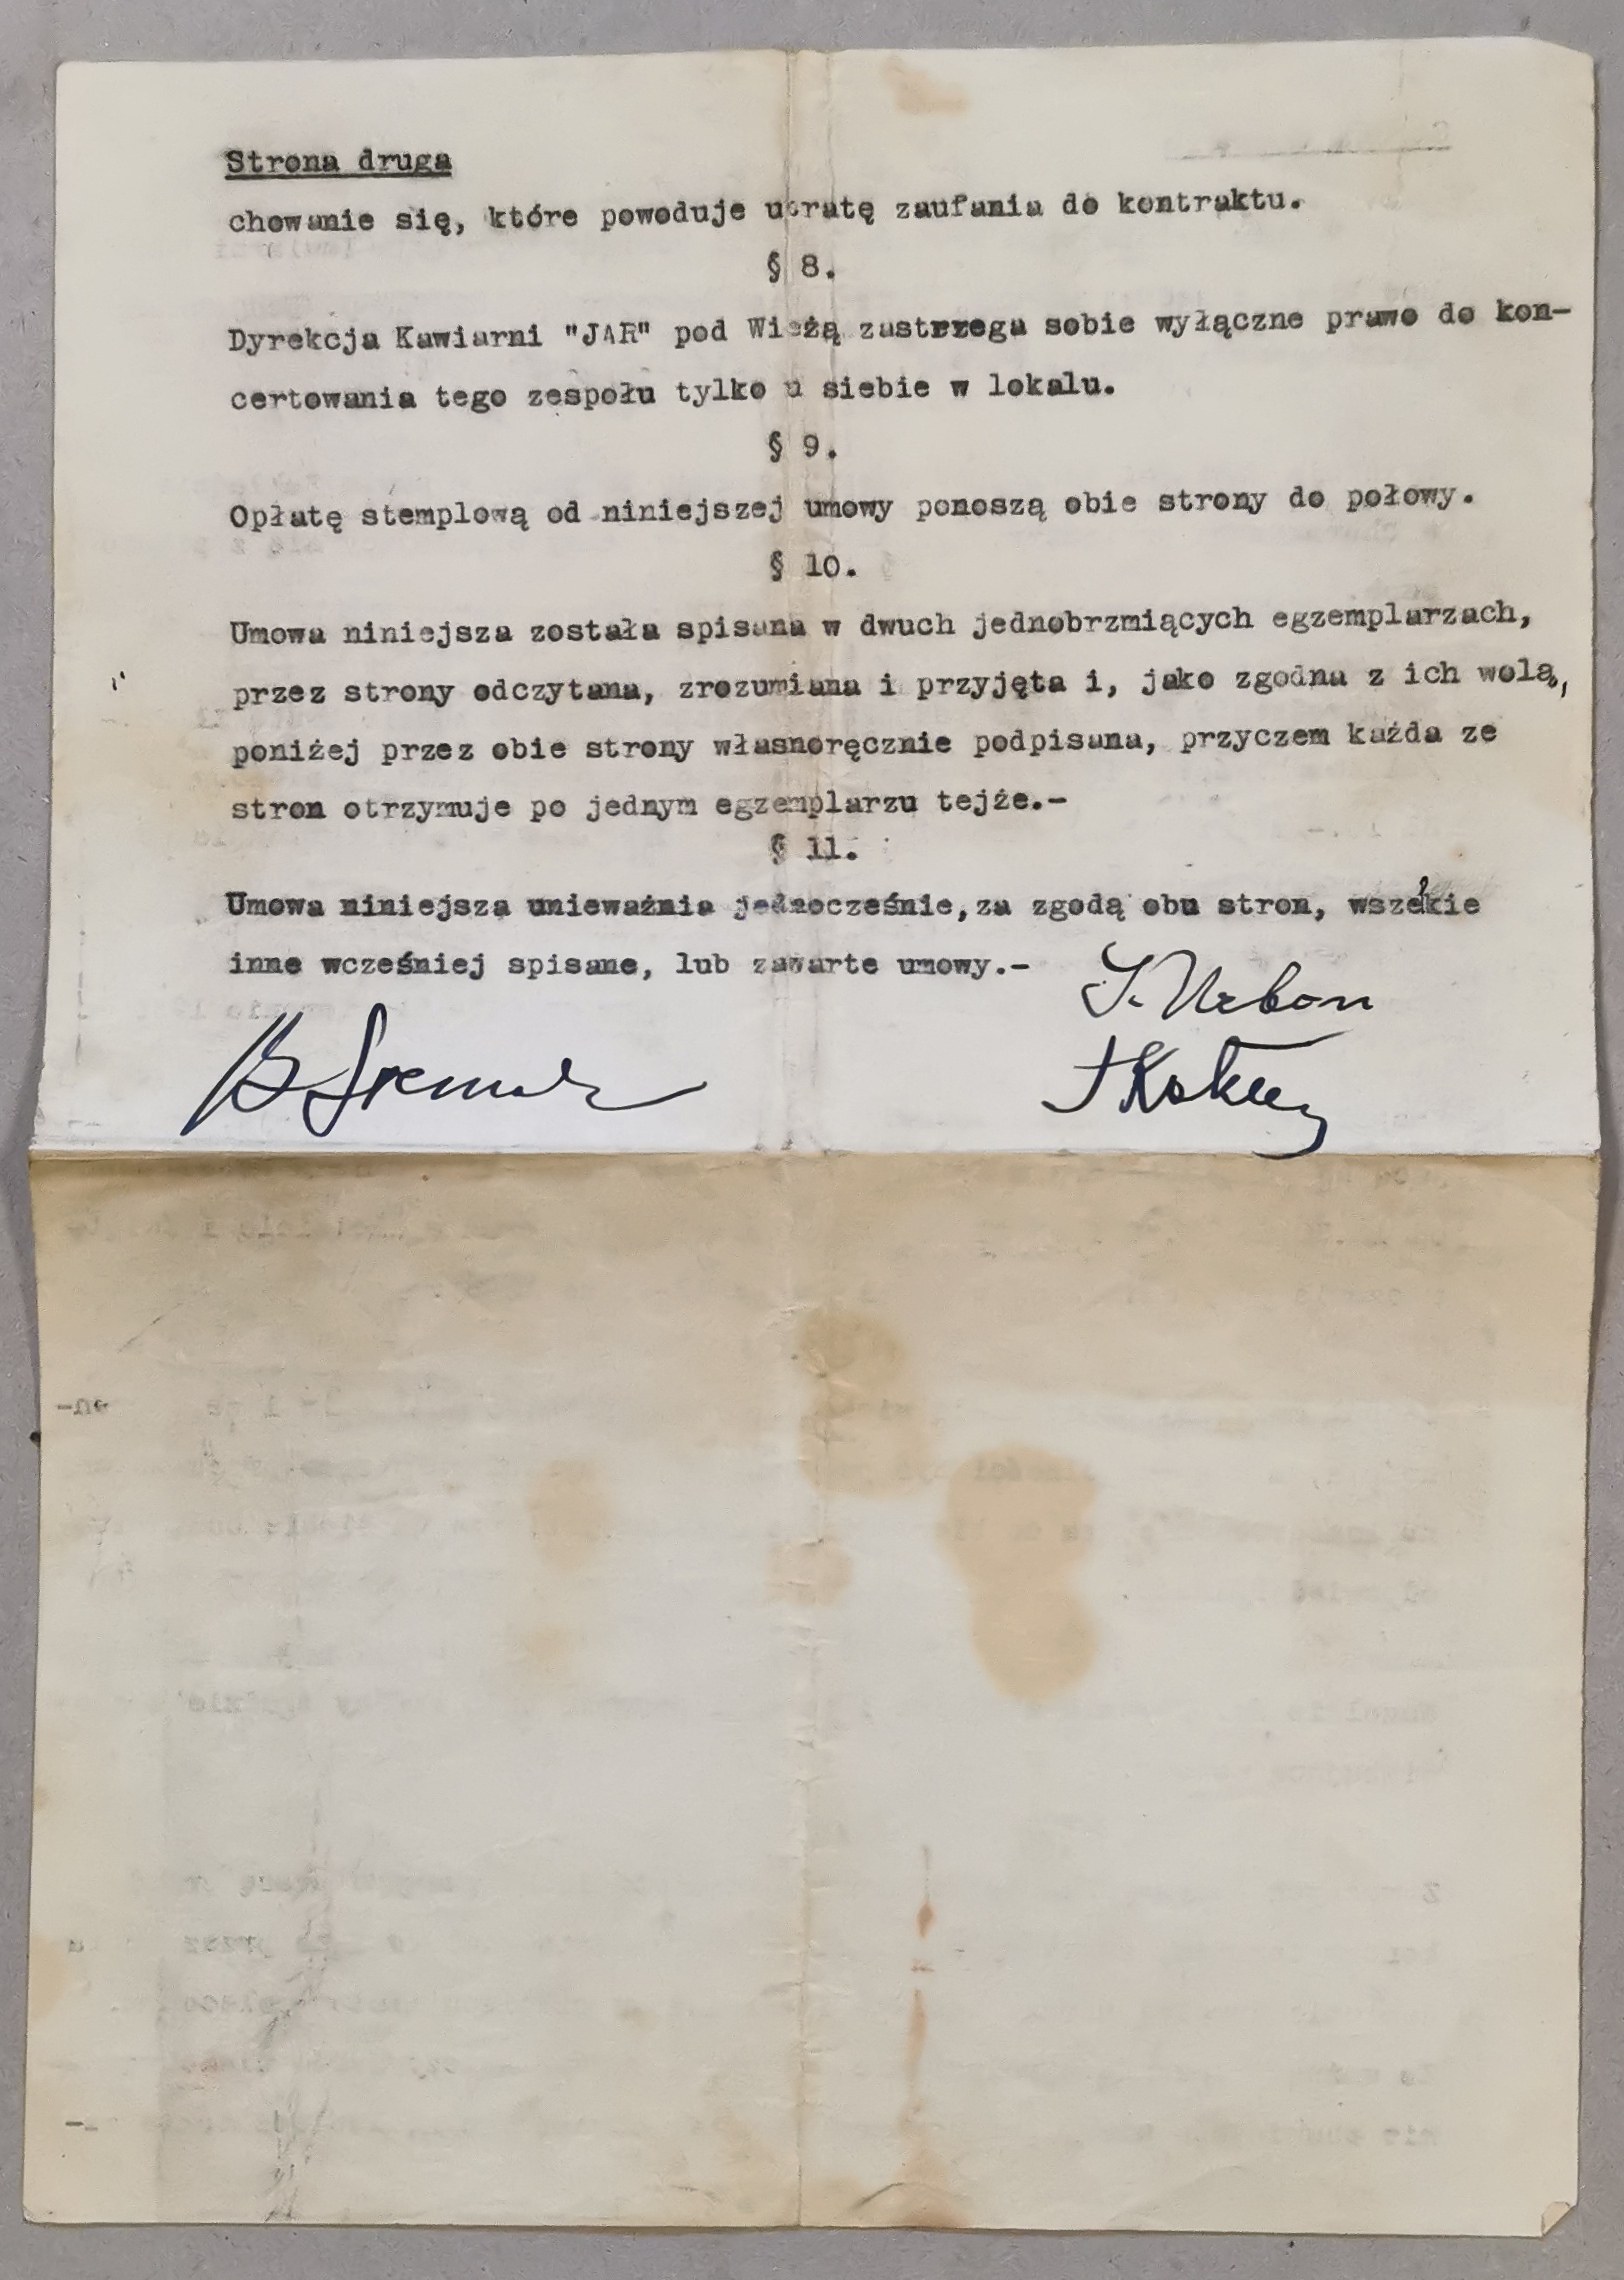 Strona druga
chowanie się, które powoduje utratę zaufania do kontraktu.
§ 8.
Dyrekcja Kawiarni "JAR" pod Wieżą zastrzega sobie wyłączne prawo do kon-
certowania tego zespołu tylko u siebie w lokalu.
§ 9.
Opłatę stemplową od niniejszej umowy ponoszą obie strony do połowy.
§ 10.
Umowa niniejsza została spisana w dwuch jednobrzmiących egzemplarzach,
przez strony odczytana, zrozumiana i przyjęta i, jako zgodna z ich wolą,
poniżej przez obie strony własnoręcznie podpisana, przyczem każda ze
stron otrzymuje po jednym egzemplarzu tejże.-
§ 11.
Umowa niniejsza unieważnia jednocześnie, za zgodą obu stron, wszelkie
inne wcześniej spisane, lub zawarte umowy.-